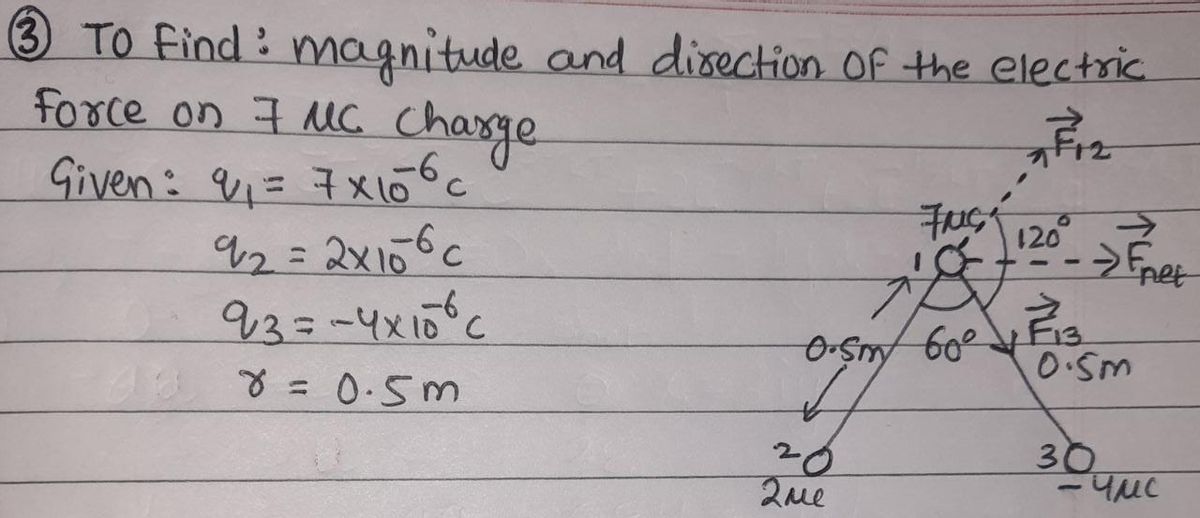 ③ To Find : magnitude and direction of the electric
Force on 7 μC charge
Given : q₁ = 7×10⁻⁶ C
q₂ = 2×10⁻⁶ C
q₃ = -4×10⁻⁶ C
r = 0.5 m
F⃗₁₂
7μC
1
120°
F⃗net
60°
F⃗₁₃
0.5m
0.5m
2
3
2μC
-4μC